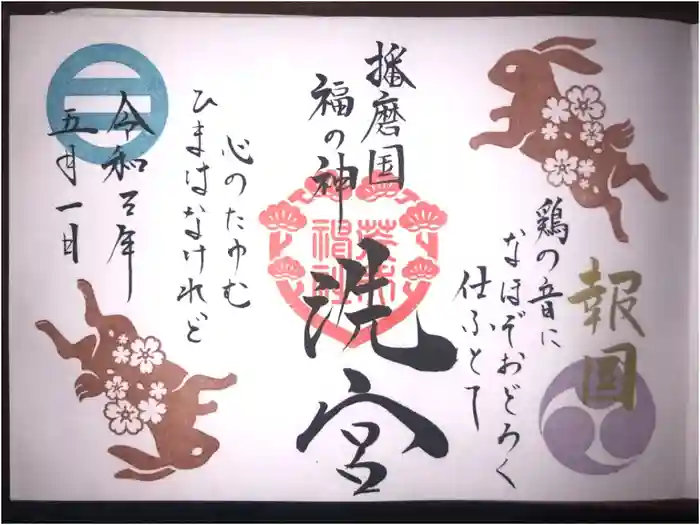 報国
鶏の音に
なほぞおどろく
仕ふとて
播磨国
福の神
洗宮
心のたゆむ
ひまはなけれど
令和五年
五月一日